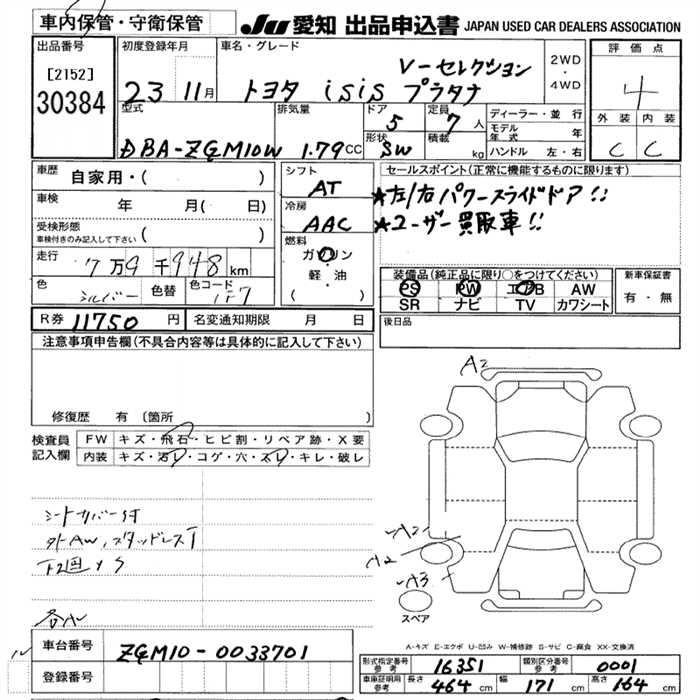 車内保管・守衛保管
JU 愛知 出品申込書 JAPAN USED CAR DEALERS ASSOCIATION
出品番号
[2152]
30384
初度登録年月
23 11月
車名・グレード
トヨタ isis プラタナ
V-セレクション
2WD
・
4WD
評価点
4
外装 内装
C C
型式
DBA-ZGM10W
排気量
1.79cc
ドア
5
形状
SW
定員
7人
積載
kg
ディーラー・並行
モデル年式 年
ハンドル 左・右
車歴
自家用・( )
車検
年 月( 日)
受検形態
車検付きのみ記入して下さい ( )
走行
7万9千948km
色
シルバー
色替
色コード
1F7
シフト
AT
冷房
AAC
燃料
ガソリン
軽・油
( )
セールスポイント(正常に機能するものに限ります)
★左/右パワースライドドア!!
★ユーザー買取車!!
装備品(純正品に限り○をつけてください)
PS PW エアB AW
SR ナビ TV カワシート
新車保証書
有・無
R券 11750円
名変通知期限 月 日
後日品
注意事項申告欄(不具合内容等は具体的に記入して下さい)
修復歴 有 〔箇所 〕
検査員
記入欄
FW キズ・飛石・ヒビ割・リペア跡・X要
内装 キズ・汚レ・コゲ・穴・スレ・キレ・破レ
シートカバー付
外AW,スタッドレスT
A2
A2
A2
A3
スペア
A-キズ E-エクボ U-凹み W-補修跡 S-サビ C-腐食 XX-交換済
車台番号
ZGM10-0033701
登録番号
形式指定番号
参考
16351
類別区分番号
参考
0001
車庫証明用
参考
長さ 464cm
幅 171cm
高さ 164cm